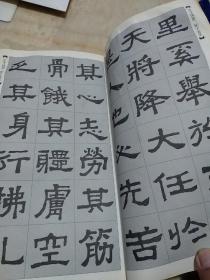 里奚舉
天將降大任於
先苦
其心志勞其筋
骨餓其體膚空
乏其身行拂乱